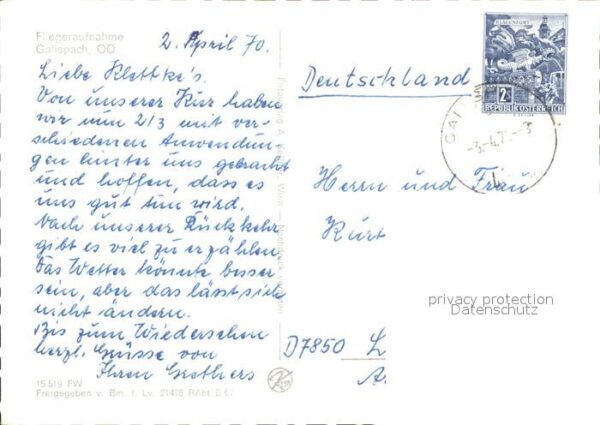 Fliegeraufnahme
Gallspach, OÖ
2. April 70.
Liebe Klettke's.
Von unserer Kur haben
wir nun 2/3 mit ver-
schiedenen Anwendun-
gen hinter uns gebracht
und hoffen, dass es
uns gut tun wird.
Nach unserer Rückkehr
gibt es viel zu erzählen.
Das Wetter könnte besser
sein, aber das lässt sich
nicht ändern.
Bis zum Wiedersehen
herzl. Grüsse von
Ihren
15.519 FW
Freigegeben v. Bm. f. Lv. 21478 RAbt. B 67
Deutschland
KLAGENFURT
2S
REPUBLIK ÖSTERREICH
-3.-4.7 -3
Herrn und Frau
Kurt
privacy protection
Datenschutz
D7850 L